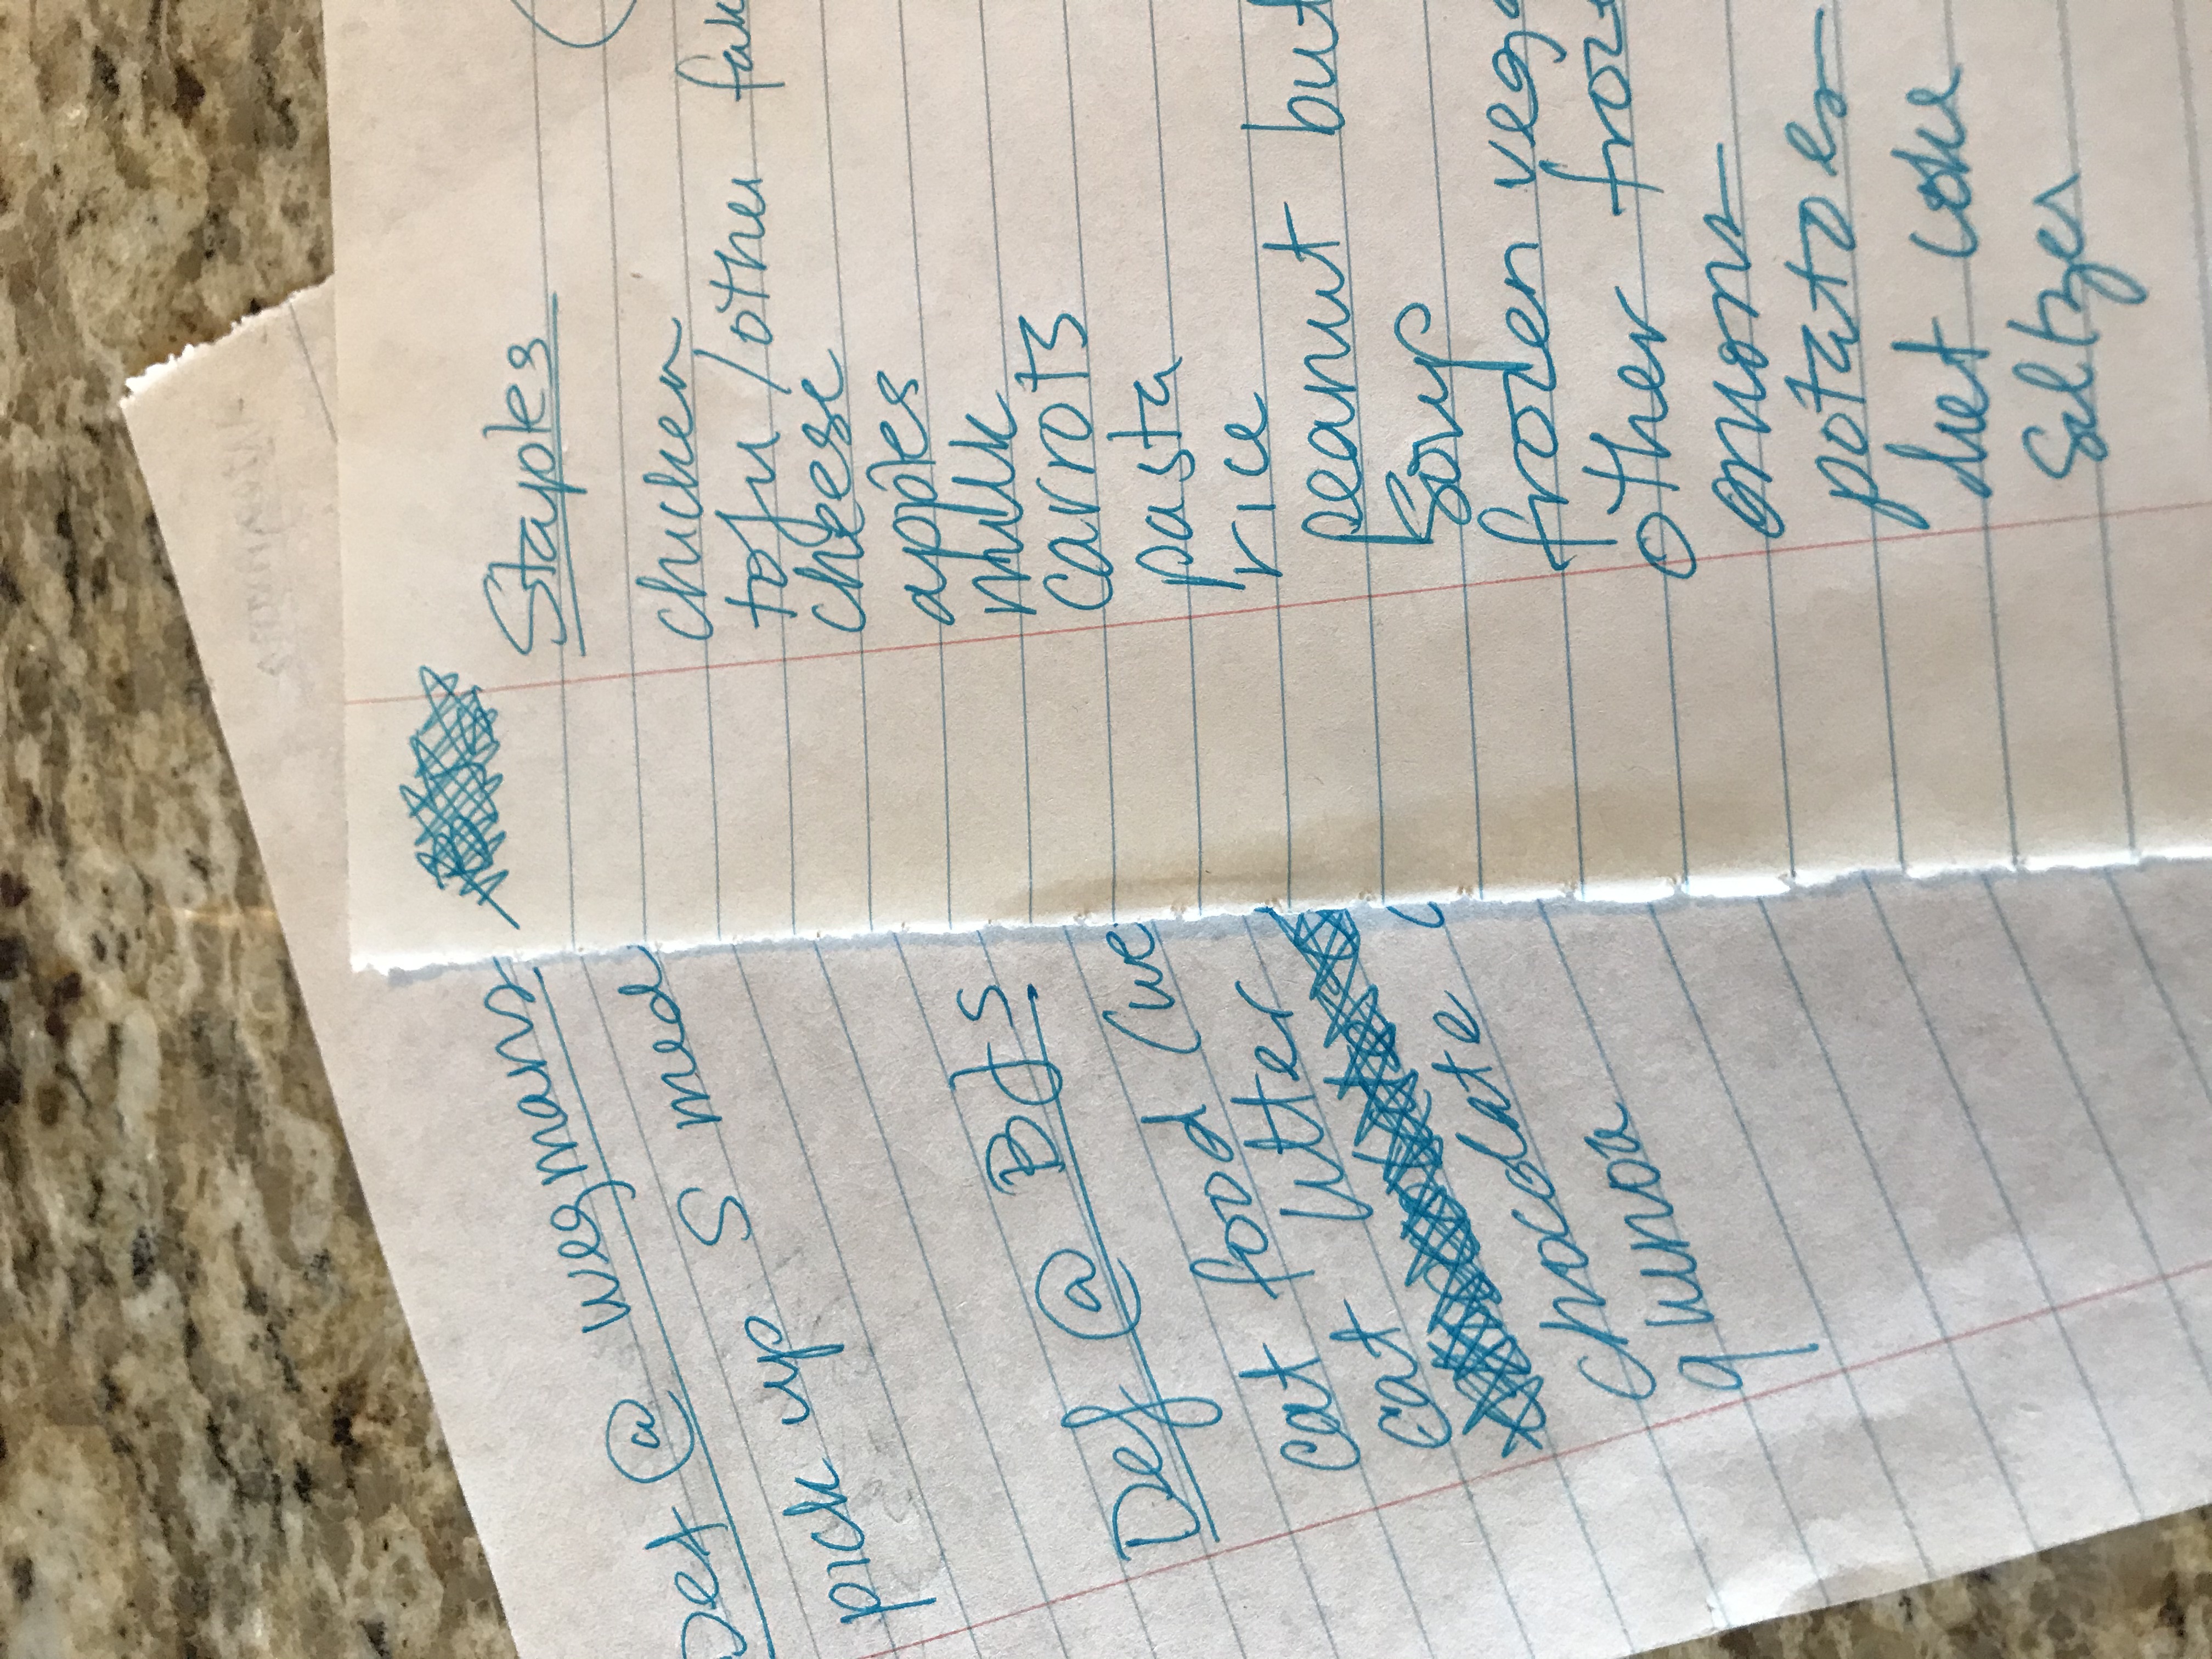 Staples
chicken
tofu / other fak
cheese
apples
milk
carrots
pasta
rice
peanut but
soup
frozen veg
other froz
onions
potatoes
diet coke
Seltzer
Def @ wegmans
pick up S med
Def @ BJs
cat food (we
cat litter
chocolate
quinoa